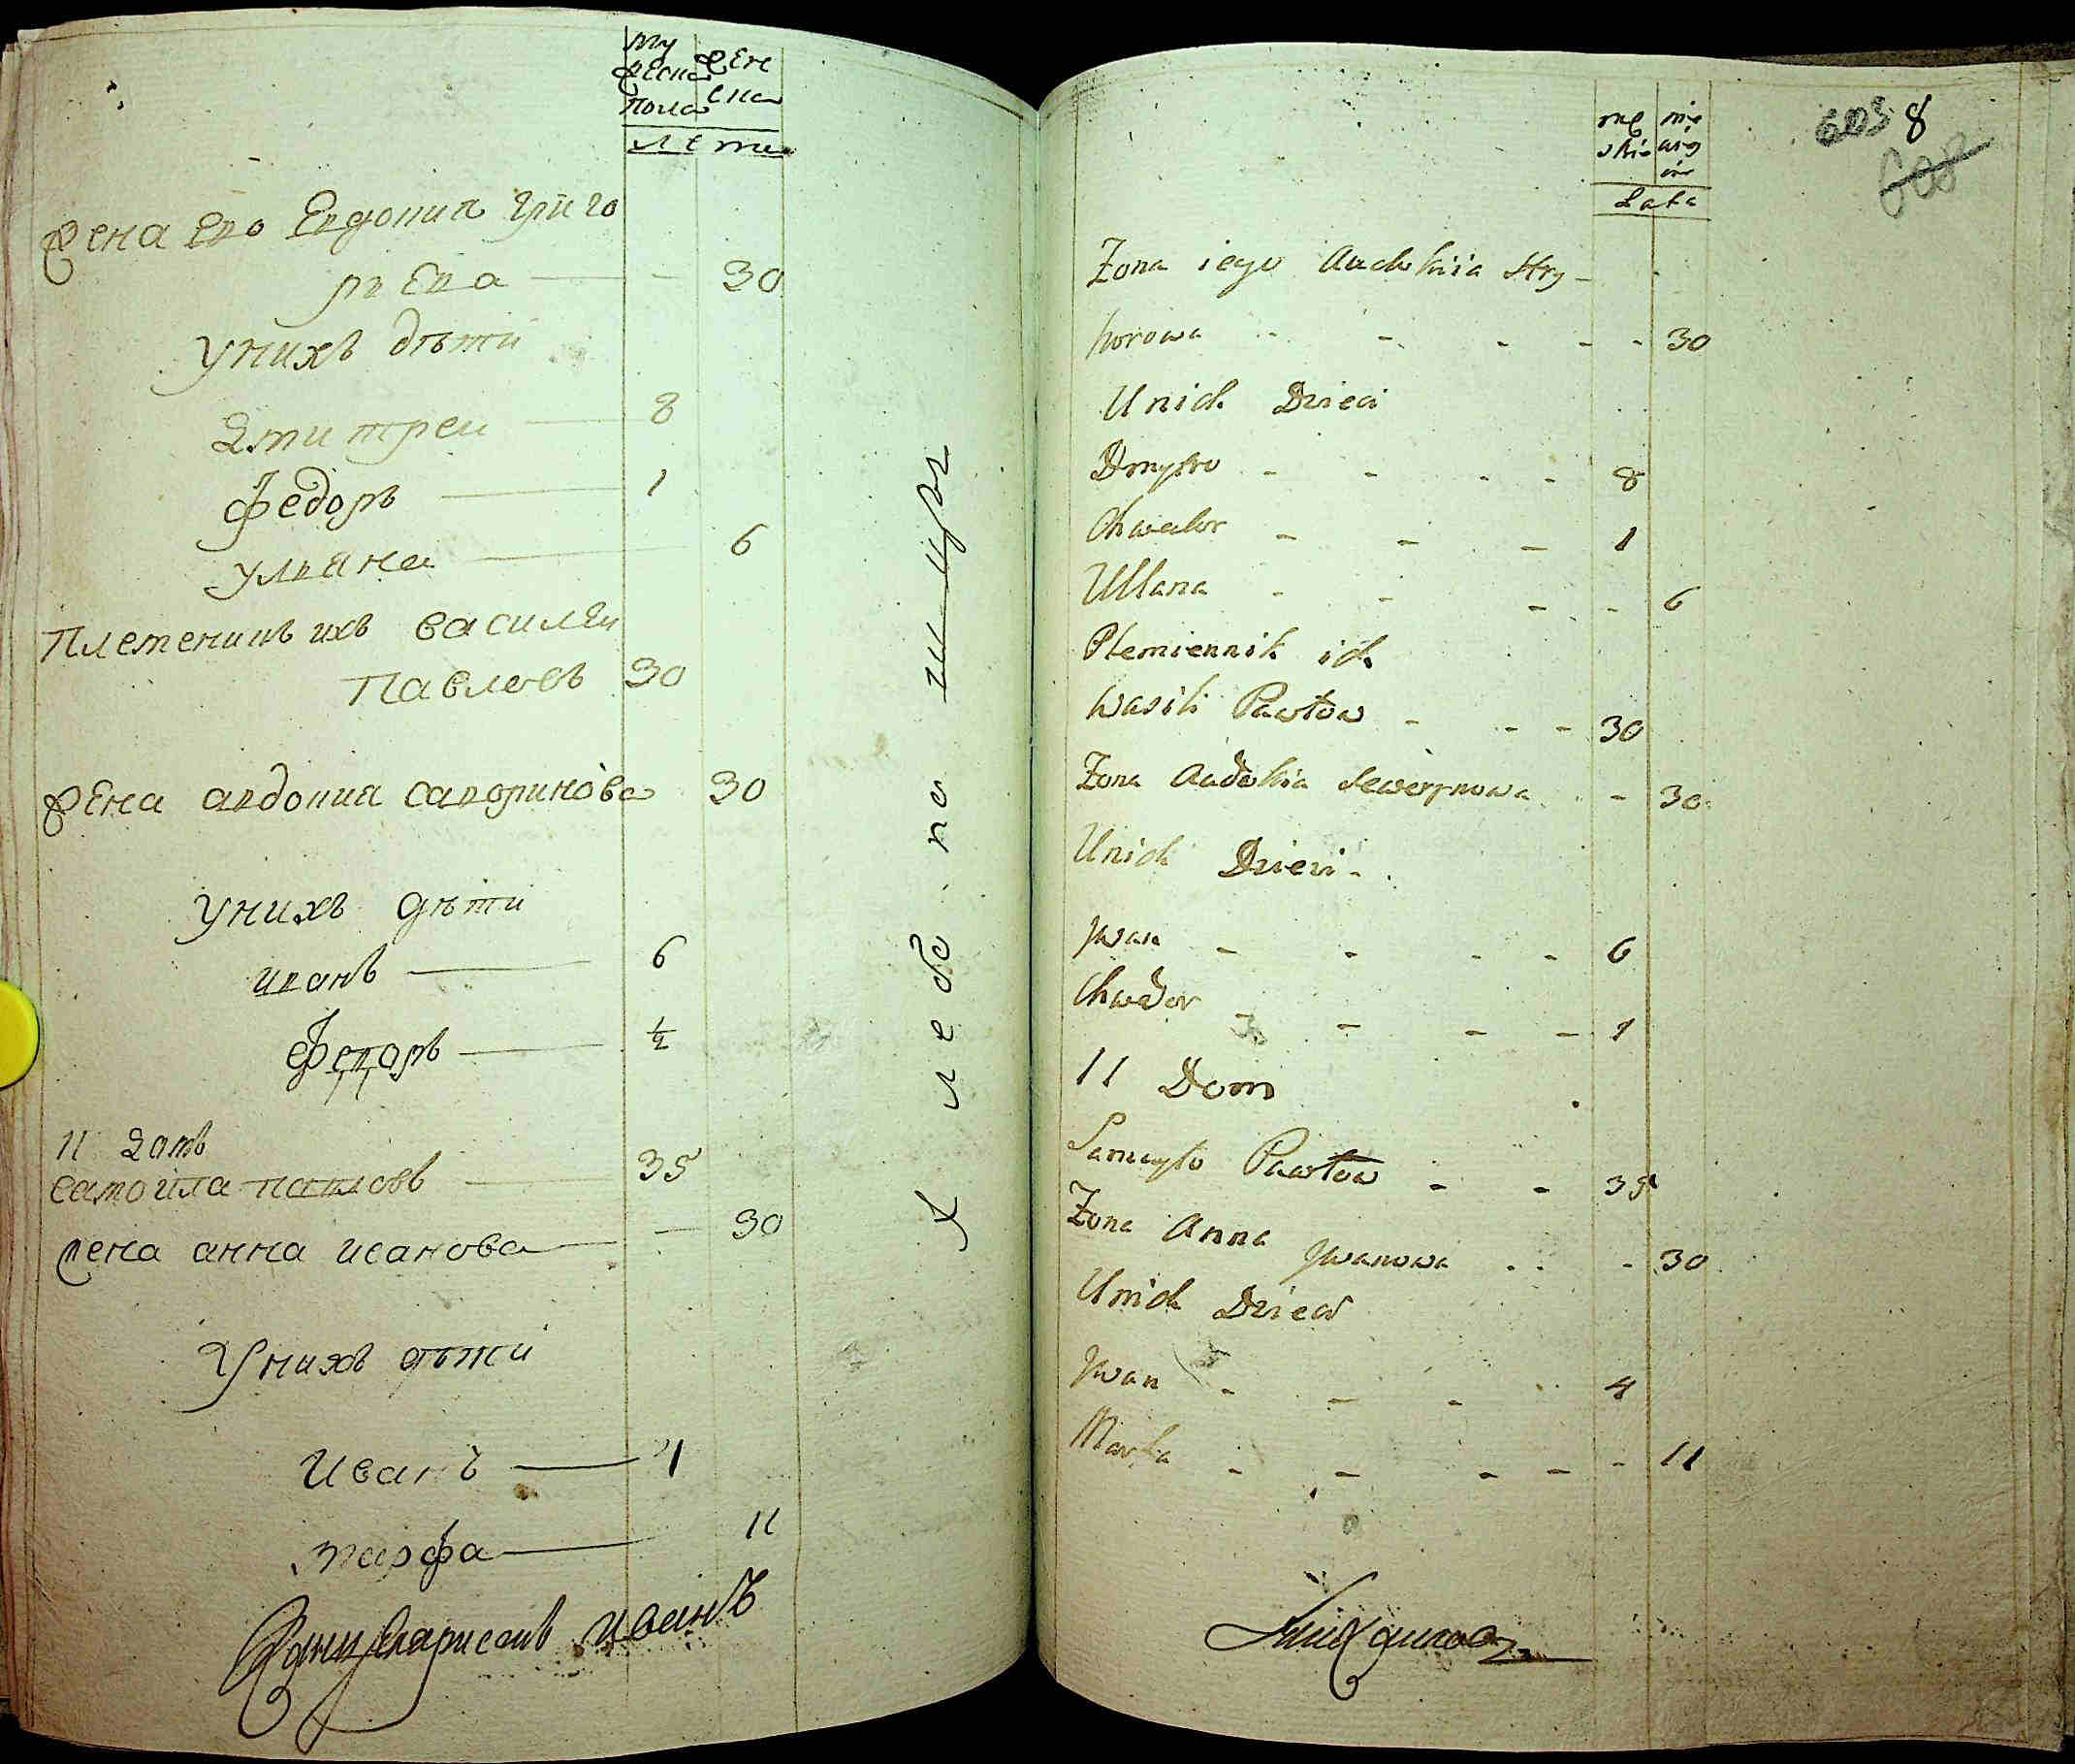 му жеска пола
жен ска
лета
жена ево Евдокия Григо
рьева — 30
у нихъ дѣти
Дмитреи — 8
Федоръ — 1
ульяна — 6
Племеникъ ихъ василеи
Павловъ 30
жена авдокия савфринова 30
у нихъ дѣти
иванъ — 6
Федоръ — ½
11 Дамъ
самоила павловъ — 35
жена анна иванова — 30
У нихъ дѣти
Иванъ — 4
марфа — 11
иванъ
męskie
Lata
603 8
608
Żona iego Audokiia Hry-
horowa - - - - - 30
Unich Dzieci
Dmytro - - - - 8
Chwedor - - - 1
Ullana - - - - 6
Plemiennik ich
Wasili Pawłow - - - 30
Żona Audokia Sewerynowa - 30
Unich Dzieci -
Jwan - - - - 6
Chwedor - - - - 1
11 Dom
Samuyło Pawłow - - 35
Żona Anna
Jwanowa - 30
Unich Dzieci
Jwan - - - 4
Marta - - - - - 11